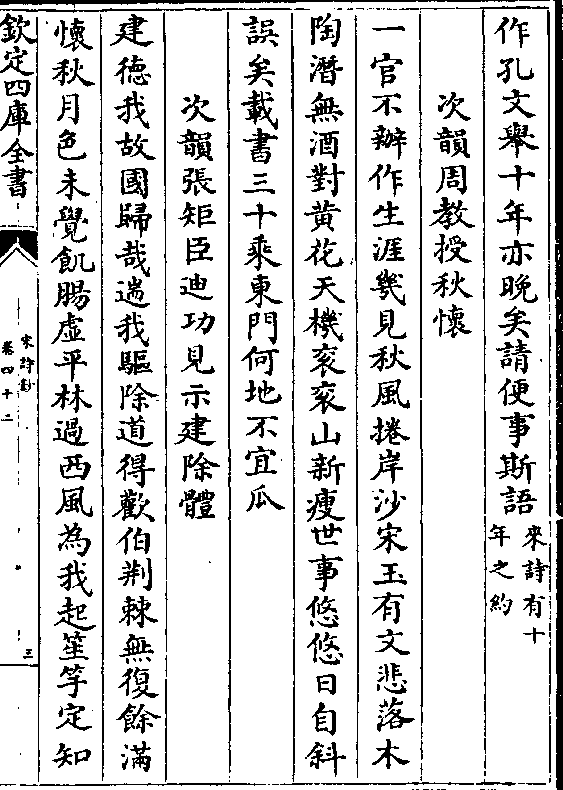 作孔文舉十年亦晚矣請便事斯語來詩有十年之約
次韻周教授秋懷
一官不辦作生涯幾見秋風捲岸沙宋玉有文悲落木
陶潛無酒對黄花天機衮衮山新瘦世事悠悠日自斜
誤矣載書三十乘東門何地不宜瓜
次韻張矩臣迪功見示建除體
建德我故國歸哉遄我驅除道得歡伯荆棘無復餘滿
懷秋月色未覺飢腸虛平林過西風為我起笙竽定知
欽定四庫全書
宋詩鈔
卷四十二
三